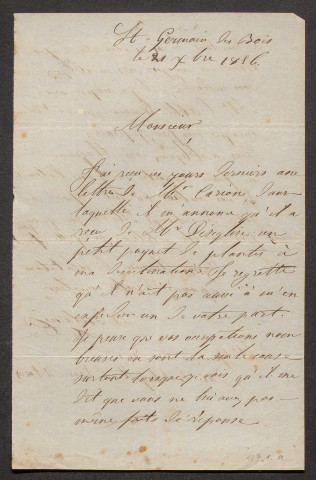 St Germain des Bois
le 21 Xbre 1886
Monsieur
J'ai reçu ces jours derniers une
lettre de Mr Carion dans
laquelle il m'annonce qu'il a
reçu de Mr Déséglise un
petit paquet de plantes à
ma destination. Je regrette
qu'il n'ait pas aussi à m'en
un de votre part.
Je pense que vos occupations nom
breuses en sont la seule cause
surtout lorsque je vois qu'il me
dit que vous ne lui avez pas
même fait de réponse